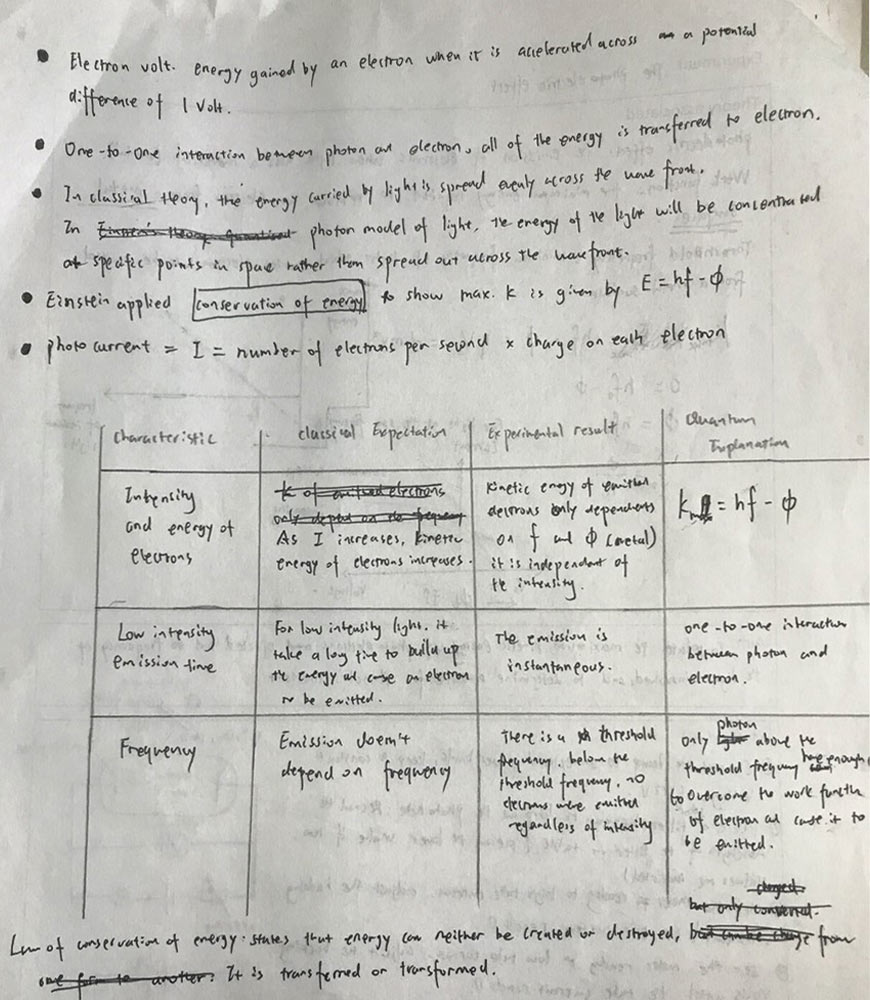 • Electron volt. energy gained by an electron when it is accelerated across a potential
difference of 1 Volt.
• One-to-one interaction between photon and electron, all of the energy is transferred to electron.
• In classical theory, the energy carried by light is spread evenly across the wave front.
In Einstein's theory quantised photon model of light, the energy of the light will be concentrated
at specific points in space rather than spread out across the wavefront.
• Einstein applied conservation of energy to show max. k is given by E = hf - ϕ
• photo current = I = number of electrons per second × charge on each electron
Characteristic
Classical Expectation
Experimental result
Quantum
Explanation
Intensity
and energy of
electrons
k of emitted electrons
only depend on the frequency
As I increases, kinetic
energy of electrons increases.
kinetic enegy of emitted
electrons only dependents
on f and ϕ (metal)
it is independent of
the intensity.
k = hf - ϕ
Low intensity
emission time
For low intensity light. it
take a long time to build up
the energy and cause an electron
to be emitted.
The emission is
instantaneous.
one-to-one interaction
between photon and
electron.
Frequency
Emission doesn't
depend on frequency
There is a threshold
frequency. below the
threshold frequency, no
electrons were emitted
regardless of intensity
photon
only light above the
threshold frequency have enough
to overcome the work function
of electron and cause it to
be emitted.
changed
but only converted.
Law of conservation of energy: states that energy can neither be created or destroyed, but can be change from
one form to another. It is transferred or transformed.